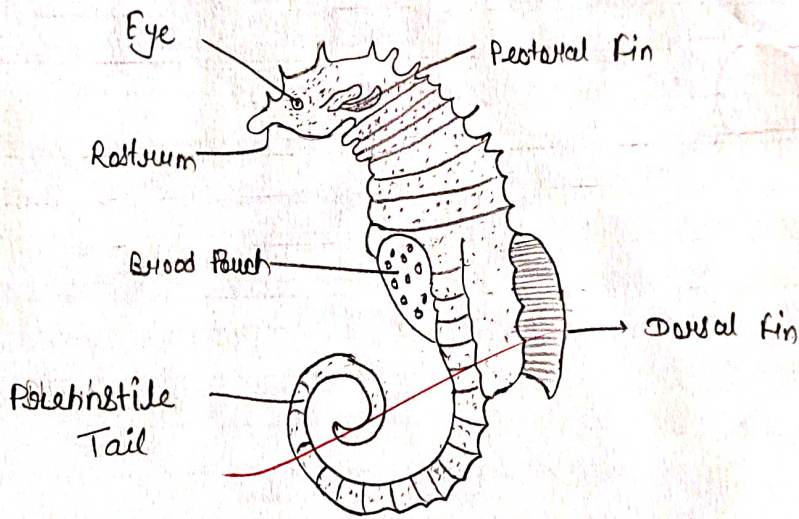 Eye
Pectoral Fin
Rostrum
Brood Pouch
Dorsal Fin
Prehinstile
Tail